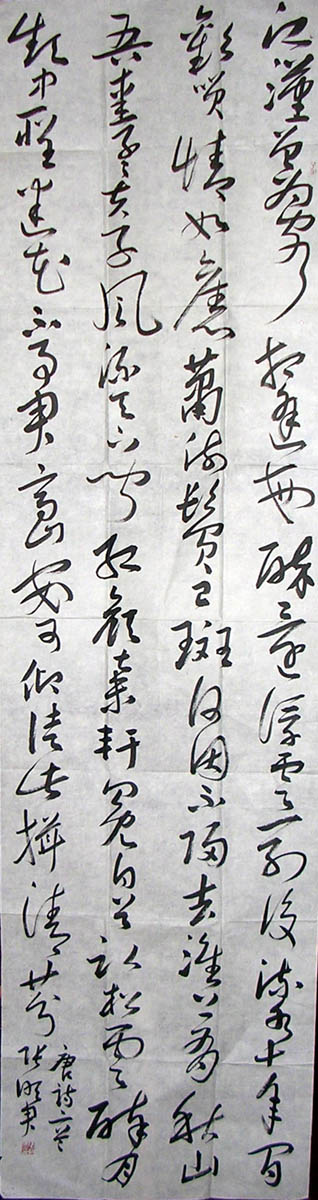 江漢曾為客相逢每醉還浮雲一別後流水十年間
歡笑情如舊蕭疏鬢已斑何因不歸去淮上有秋山
吾愛孟夫子風流天下聞紅顏棄軒冕白首臥松雲醉月
頻中聖迷花不事君高山安可仰徒此揖清芬
唐詩二首
张